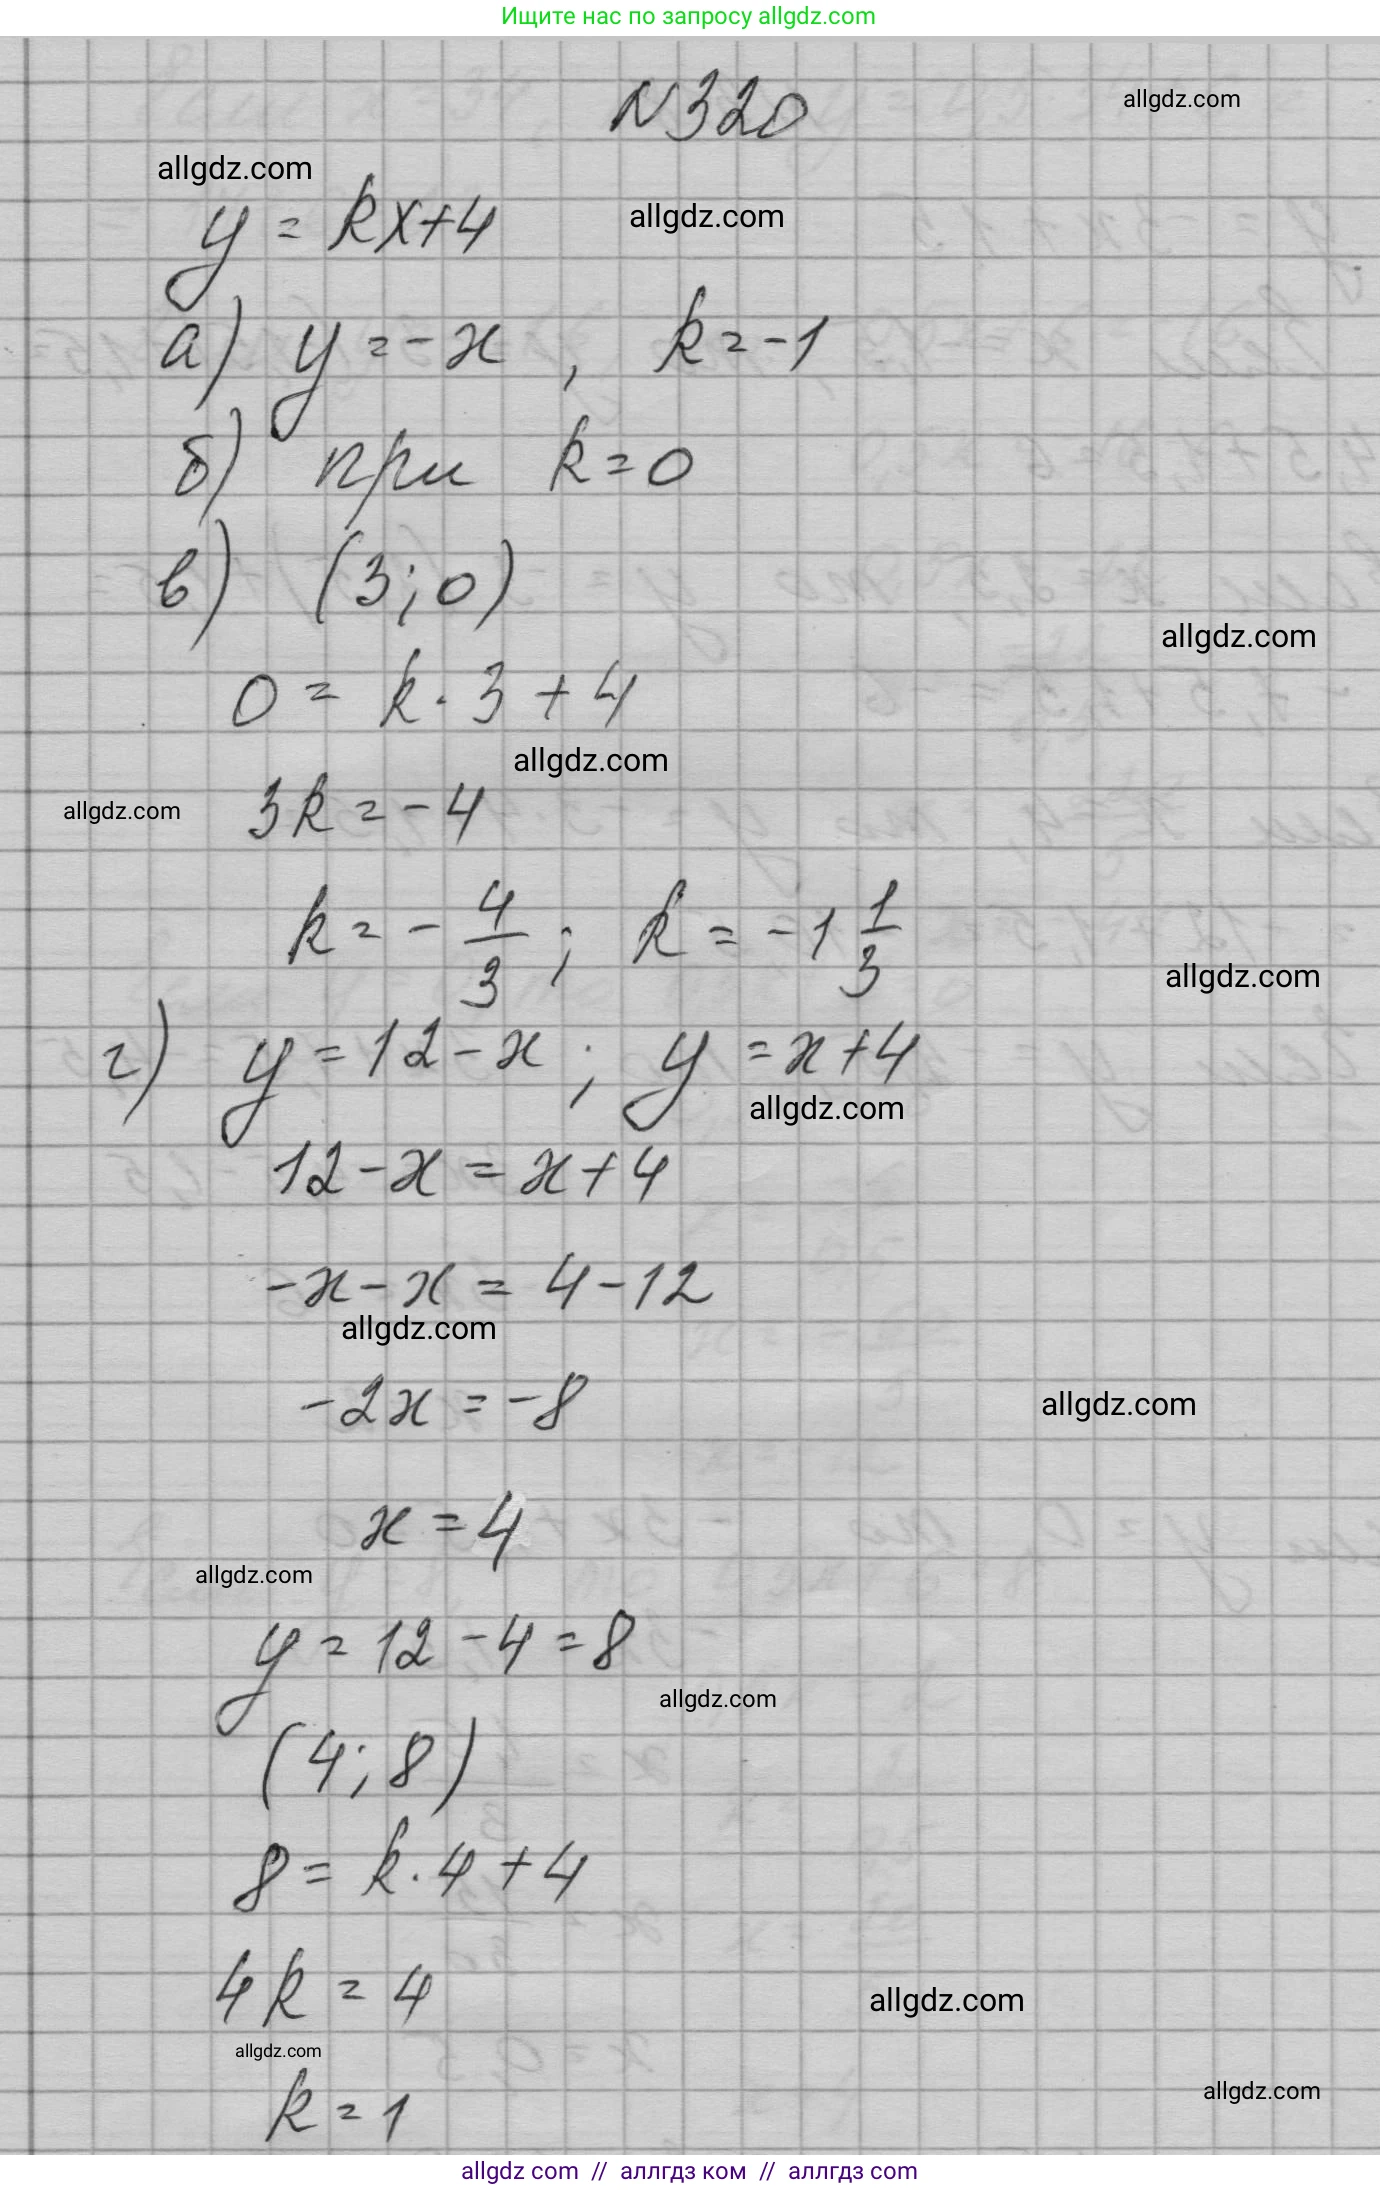 Ищите нас по запросу allgdz.com
N320
allgdz.com
allgdz.com
y = kx+4
allgdz.com
а) y = -x , k = -1
б) при k = 0
в) (3; 0)
allgdz.com
0 = k · 3 + 4
allgdz.com
3k = -4
allgdz.com
k = - 4/3 ; k = -1 1/3
allgdz.com
г) y = 12 - x ; y = x + 4
allgdz.com
12 - x = x + 4
-x - x = 4 - 12
allgdz.com
-2x = -8
allgdz.com
x = 4
allgdz.com
y = 12 - 4 = 8
allgdz.com
(4; 8)
8 = k · 4 + 4
4k = 4
allgdz.com
allgdz.com
k = 1
allgdz.com
allgdz com // аллгдз ком // аллгдз com